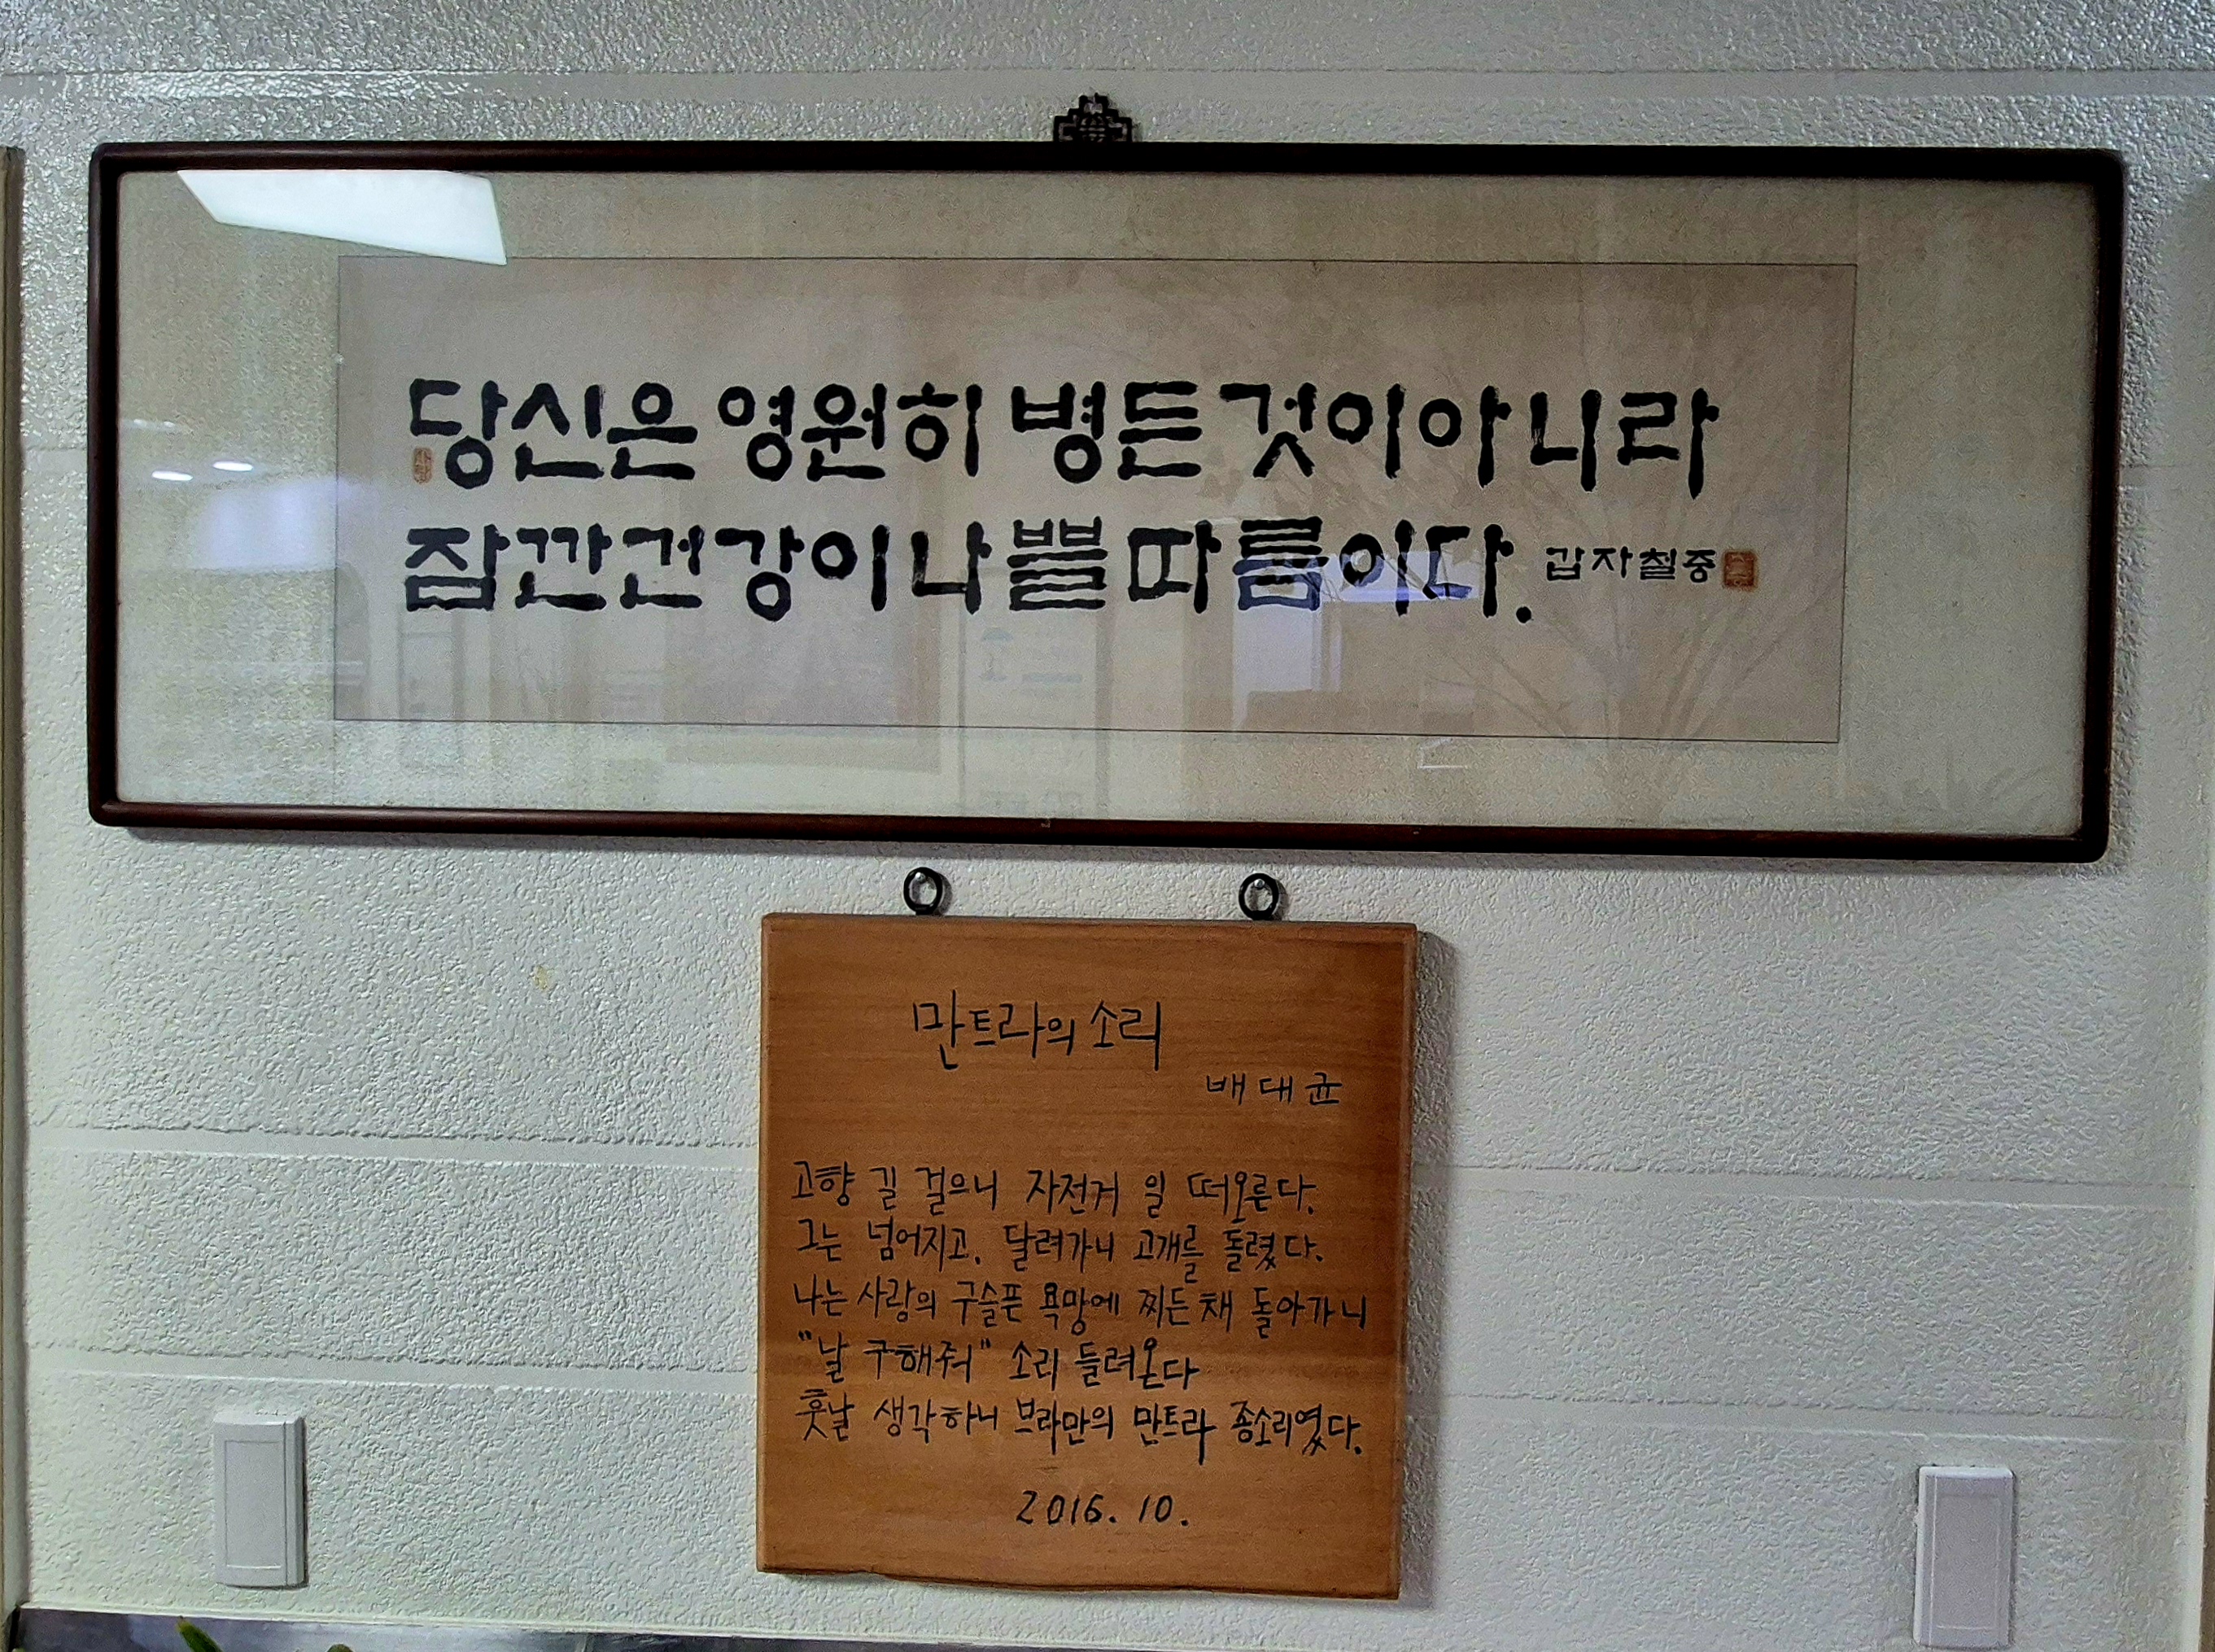 당신은 영원히 병든 것이 아니라
잠깐 건강이 나쁠 따름이다. 갑자 철중
사랑
만트라의 소리
배대균
고향 길 걸으니 자전거 일 떠오른다.
그는 넘어지고, 달려가니 고개를 돌렸다.
나는 사랑의 구슬픈 욕망에 찌든 채 돌아가니
"날 구해줘" 소리 들려온다
훗날 생각하니 브라만의 만트라 종소리였다.
2016. 10.